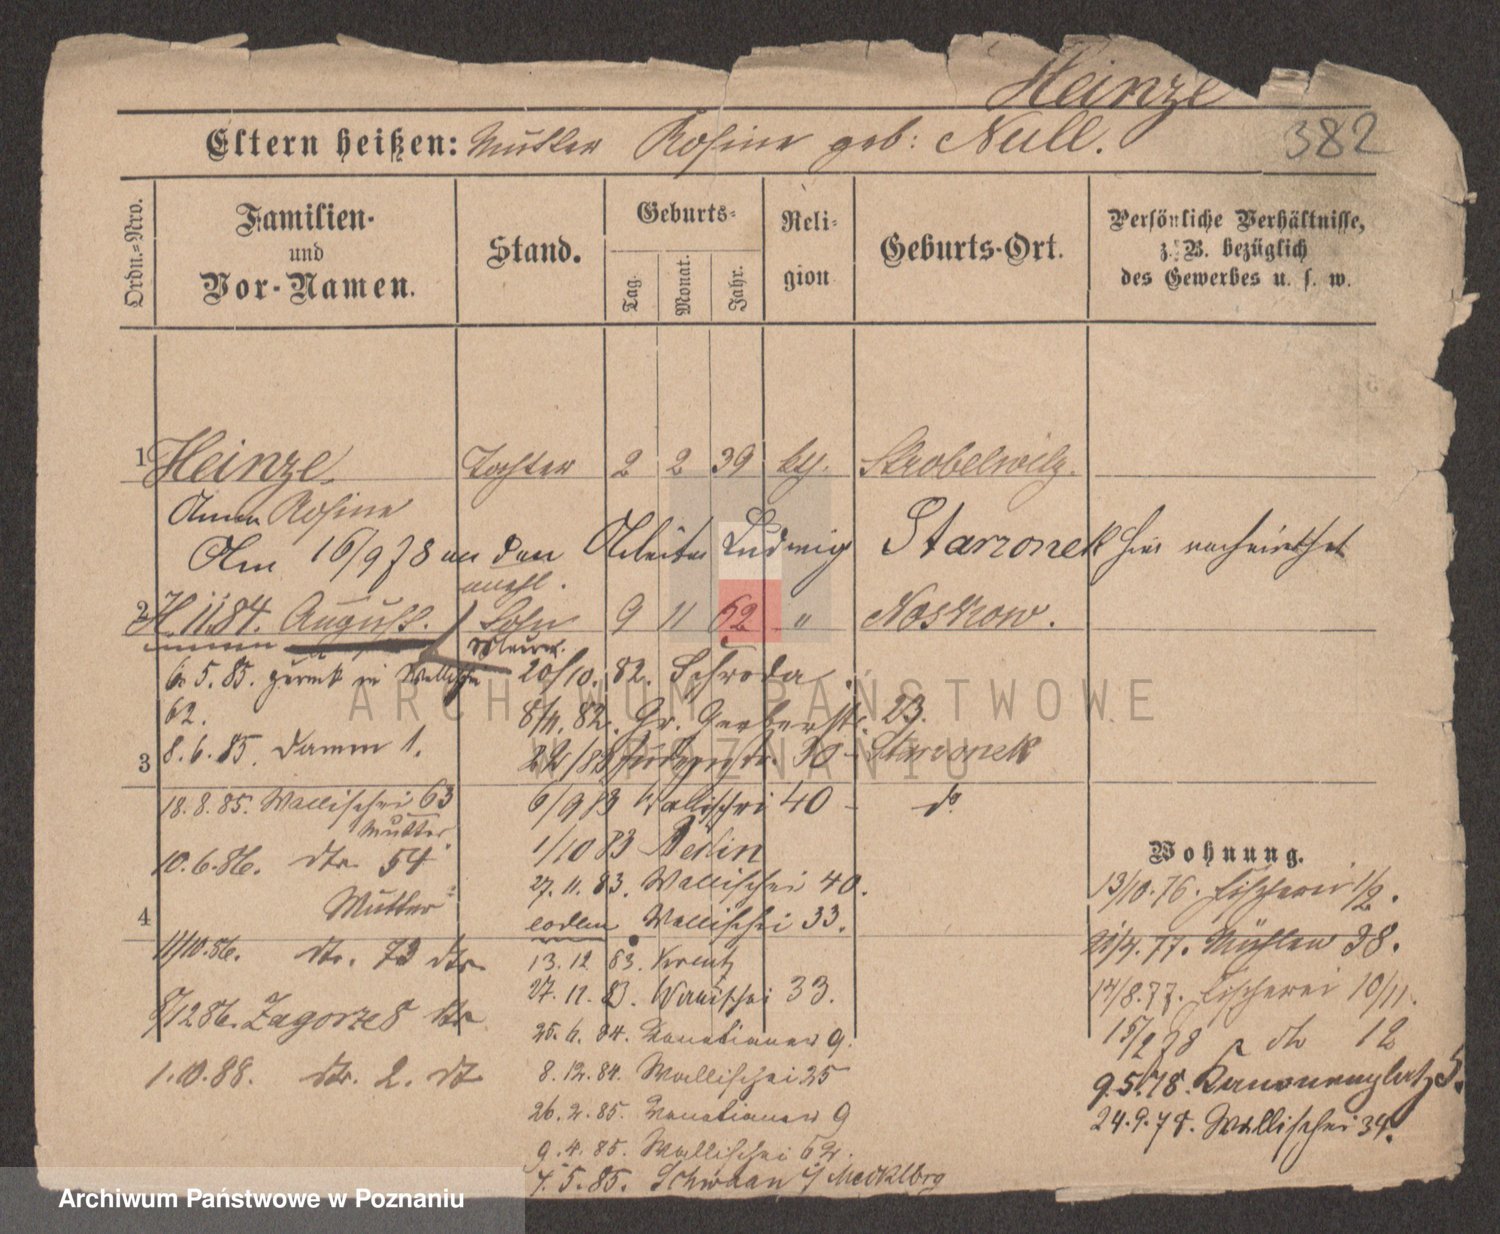 Heinze
382
Eltern heißen: Mutter Rosine geb: Null.
Ordn.=Nro.
Familien- und Vor-Namen.
Stand.
Geburts=
Tag.
Monat.
Jahr.
Reli-gion
Geburts-Ort.
Persönliche Verhältnisse, z. B. bezüglich des Gewerbes u. s. w.
1 Heinze Tochter 2 2 39 Strobelwitz.
Anna Rosine
Am 16/9 78 an den Arbeiter Ludwig Starzonek hier verheirathet
unehl.
2 H. 11.84. August. Sohn 9 11 62 " Noskow.
6. 5. 85. zurück in Wallischei
62.
8. 6. 85. Damm 1.
3
18. 8. 85. Wallischei 63
Mutter.
10. 6. 86. dto. 54
Mutter
4
11/10. 86. dto. 73 dto.
8/12 86. Zagorze 8 dto
1. 10. 88. dto. 2. dto
20/10. 82. Schroda.
8/11. 82. Gr. Gerberstr. 23.
30 - Starzonek
6/9 83 Wallischei 40 - do
1/10 83 Berlin
27. 11. 83. Wallischei 40.
eodem Wallischei 33.
13. 12 83. Kreutz
27. 12. 83. Wallischei 33.
25. 6. 84. Venetianer 9.
8. 12. 84. Wallischei 25
26. 2. 85. Venetianer 9
9. 4. 85. Wallischei 62.
7. 5. 85. Schwaan i/ Mecklbrg
Wohnung.
13/10. 76. Fischerei 1/2.
21/4. 77. Mühlen 38.
14/8. 77. Fischerei 10/11.
15/2 78 dto 12
9. 5. 78. Kanonenplatz 5.
24. 9. 78. Wallischei 34.
ARCHIWUM PAŃSTWOWE
W POZNANIU
Archiwum Państwowe w Poznaniu